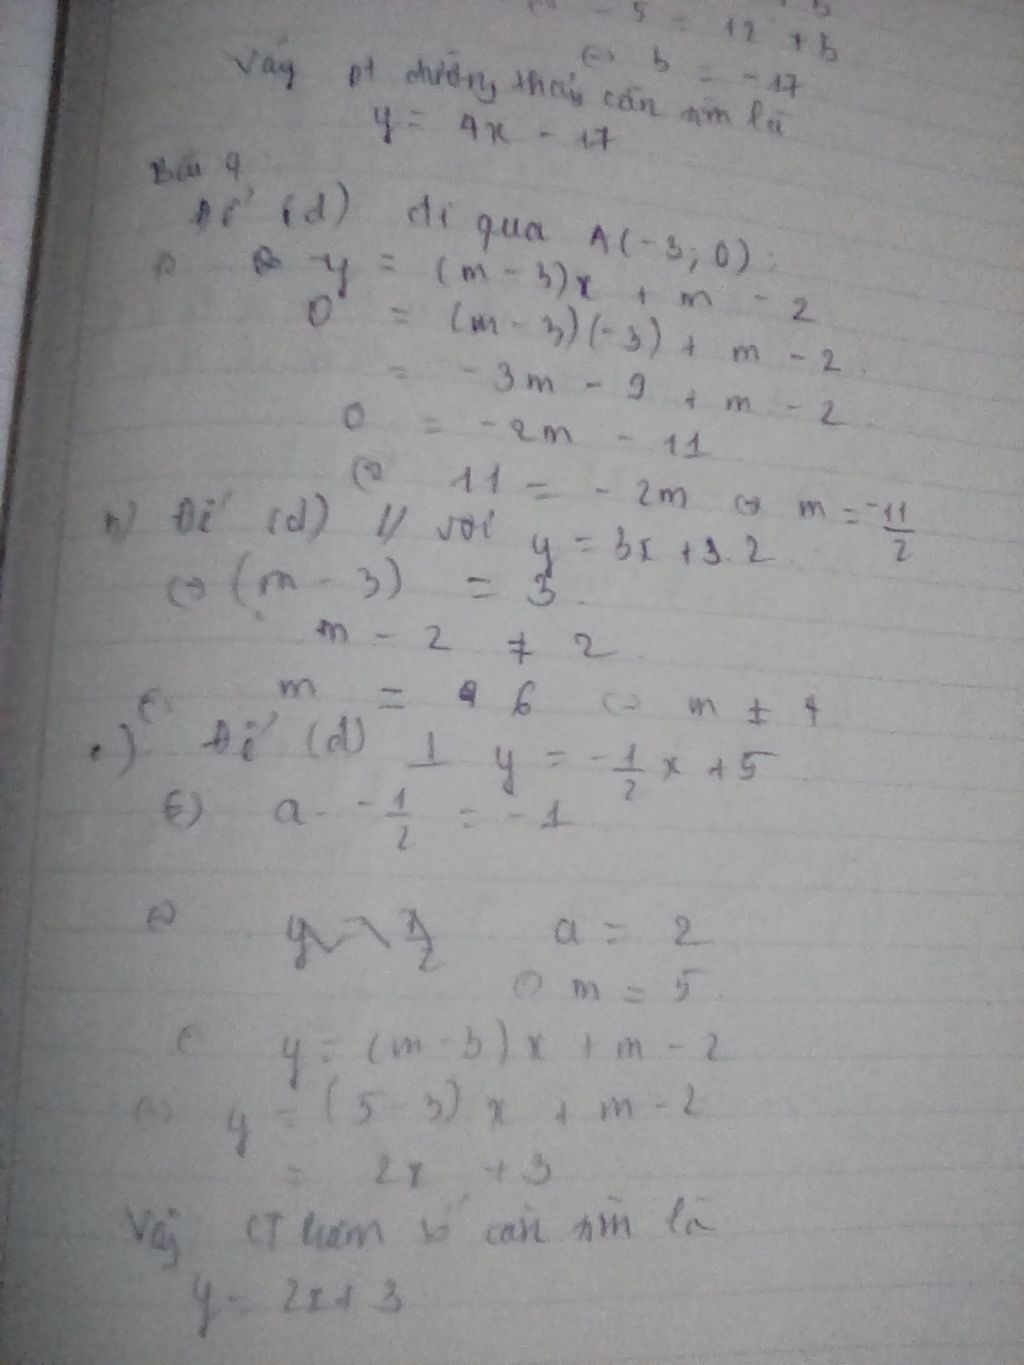 - 5 = 12 + b
⇔ b = -17
Vậy pt đường thẳng cần tìm là
y = 4x - 17
Bài 4
Để (d) đi qua A(-3; 0):
y = (m - 3)x + m - 2
0 = (m - 3)(-3) + m - 2.
= -3m - 9 + m - 2
0 = -2m - 11
⇔ 11 = -2m ⇔ m = -11/2
b) Để (d) // với y = 3x + 2
⇔ (m - 3) = 3
m - 2 ≠ 2
⇔ m = 6 ⇔ m ≠ 4
c) Để (d) ⊥ y = -1/2 x + 5
⇔ a. -1/2 = -1
⇔ a = 2
m = 5
y = (m - 3)x + m - 2
⇔ y = (5 - 3)x + m - 2
= 2x + 3
Vậy CT hàm số cần tìm là
y = 2x + 3